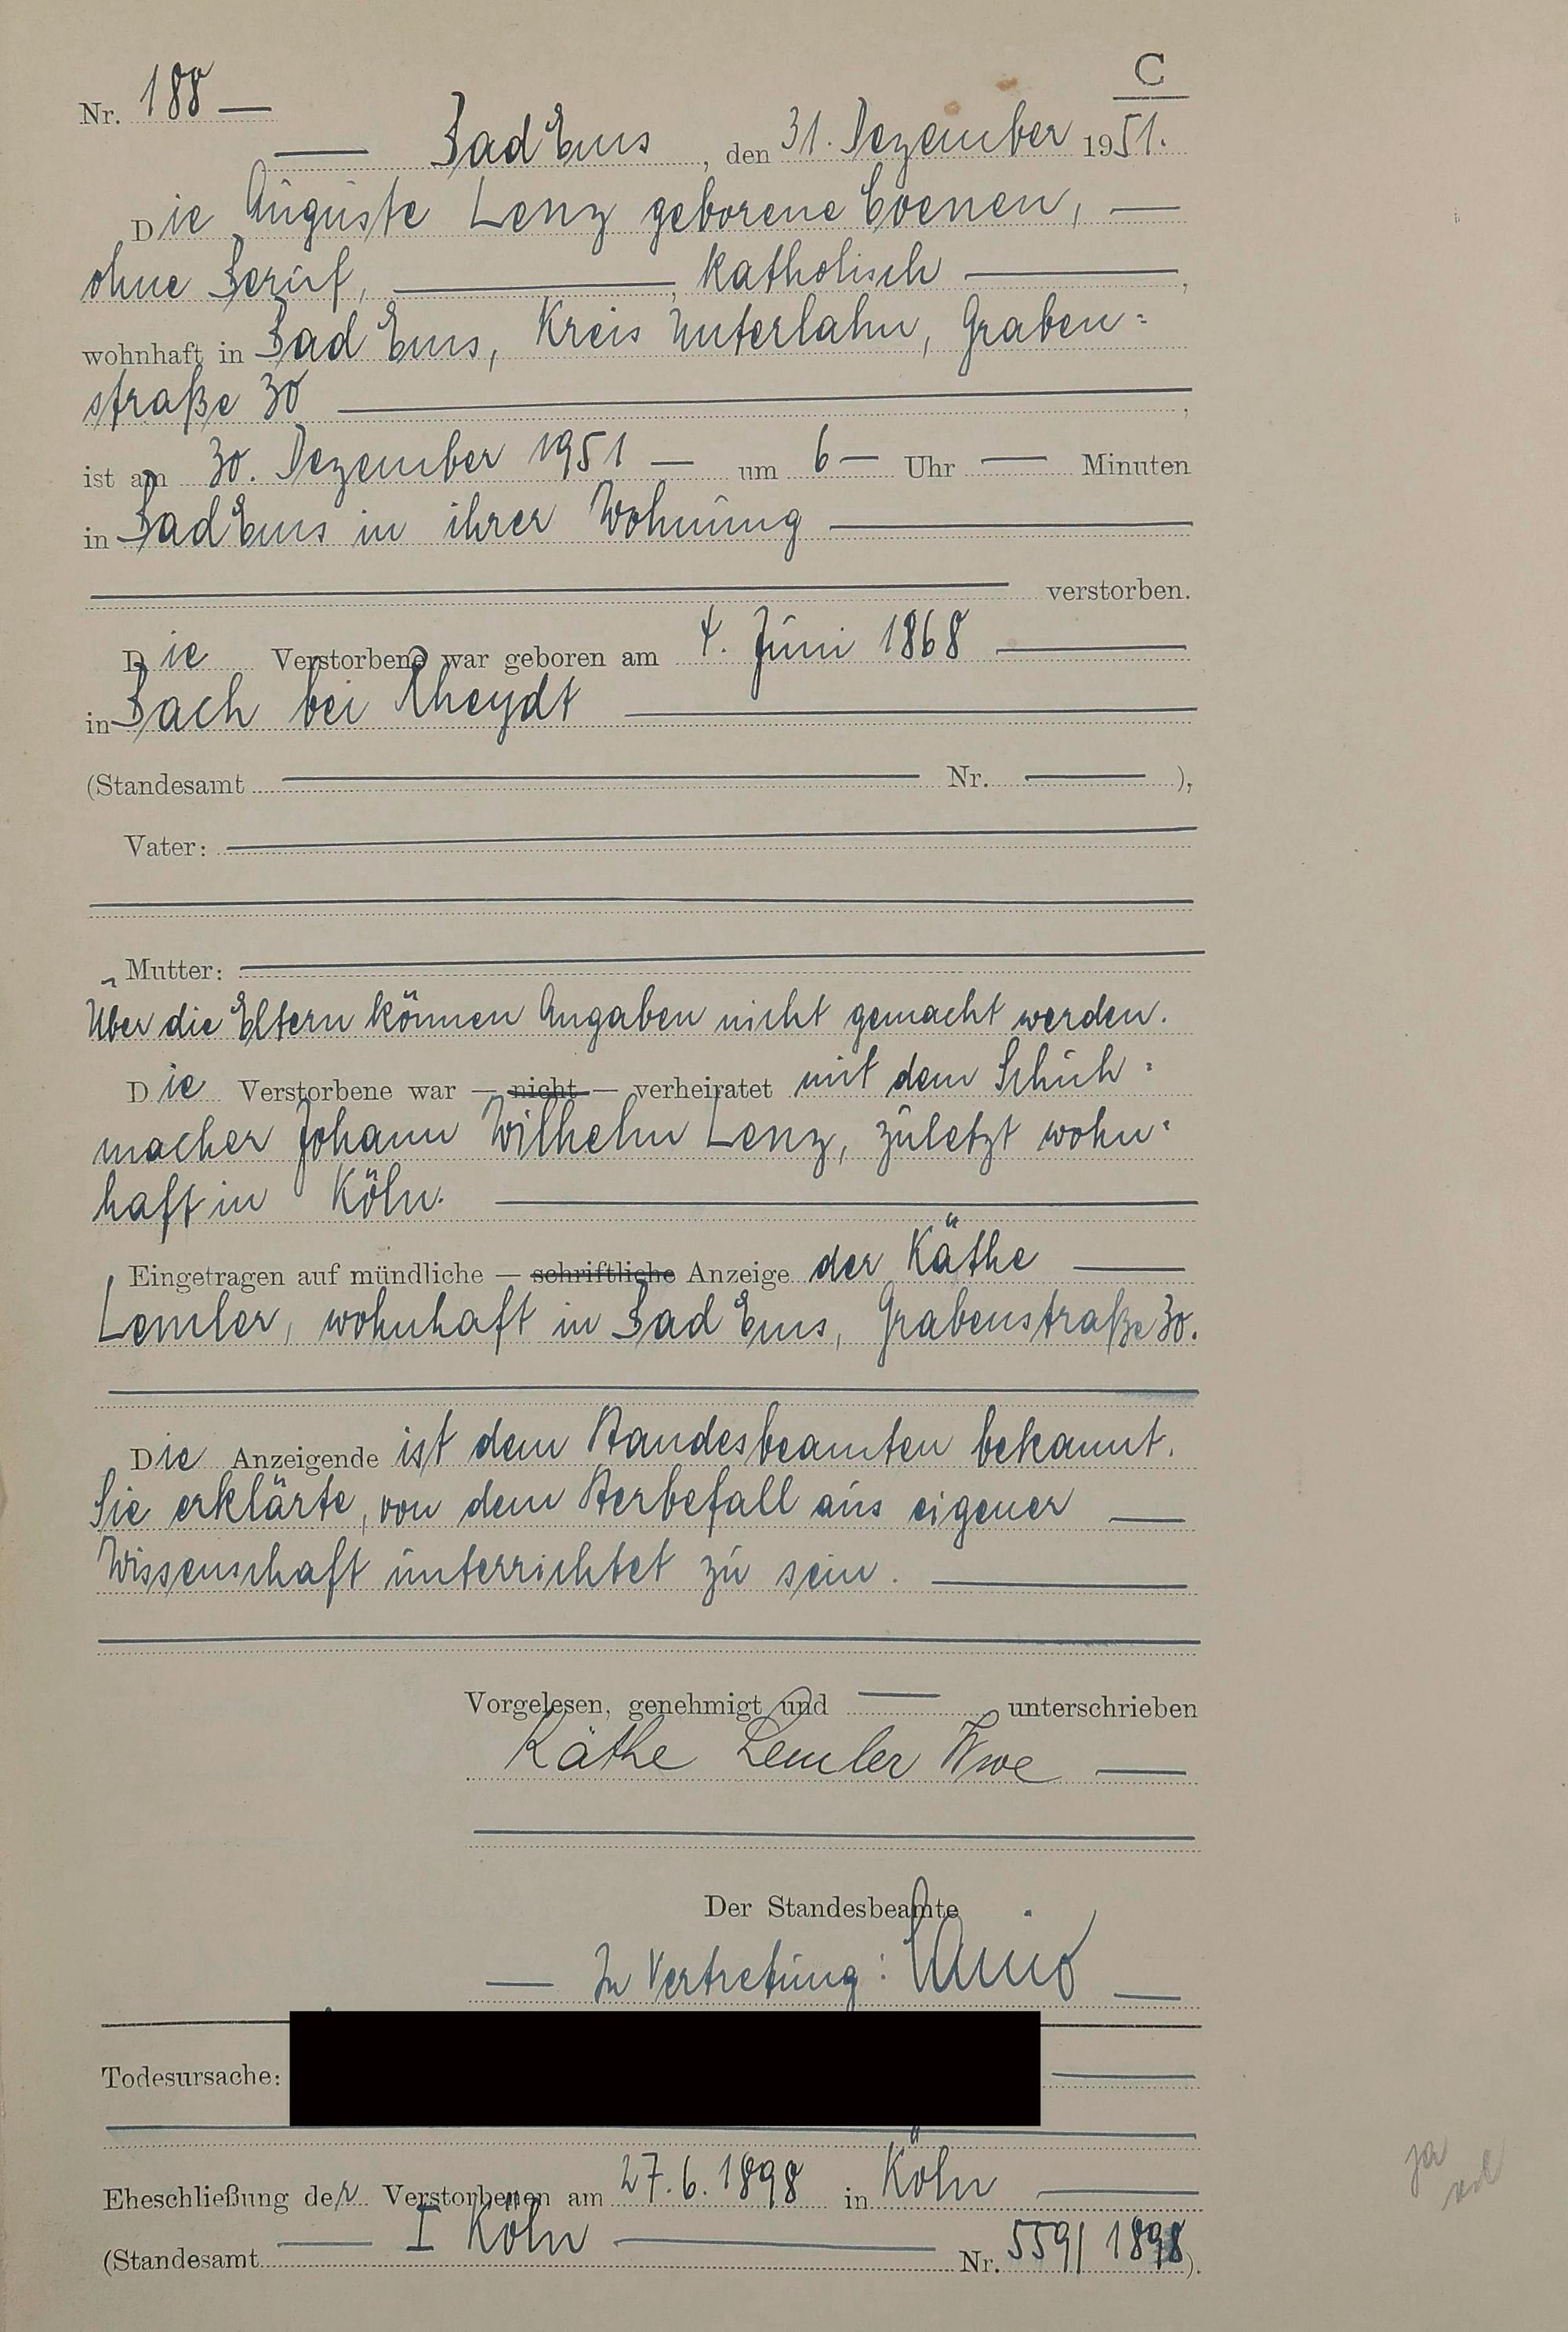 C
Nr. 188 —
— Bad Ems, den 31. Dezember 1951.
Die Auguste Lenz geborene Coenen, —
ohne Beruf, — , katholisch — ,
wohnhaft in Bad Ems, Kreis Unterlahn, Graben=
straße 30 — ,
ist am 30. Dezember 1951 — um 6 — Uhr — Minuten
in Bad Ems in ihrer Wohnung —
— verstorben.
Die Verstorbene war geboren am 4. Juni 1868 —
in Bach bei Rheydt —
(Standesamt — Nr. — ),
Vater: —
Mutter: —
Über die Eltern können Angaben nicht gemacht werden.
Die Verstorbene war — nicht — verheiratet mit dem Schuh=
macher Johann Wilhelm Lenz, zuletzt wohn=
haft in Köln. —
Eingetragen auf mündliche — schriftliche Anzeige der Käthe —
Lemler, wohnhaft in Bad Ems, Grabenstraße 30.
Die Anzeigende ist dem Standesbeamten bekannt.
Sie erklärte, von dem Sterbefall aus eigener —
Wissenschaft unterrichtet zu sein. —
Vorgelesen, genehmigt und — unterschrieben
Käthe Lemler Wwe —
Der Standesbeamte
— In Vertretung: —
Todesursache: —
Eheschließung der Verstorbenen am 27.6.1898 in Köln —
(Standesamt — I Köln — Nr. 559/1898).